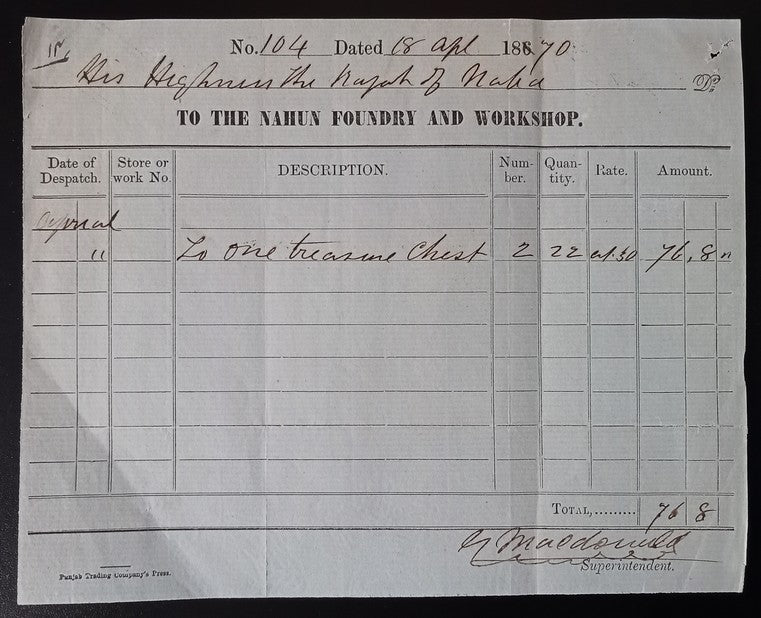 No. 104 Dated 18 apl 18670
His Highness the Rajah of Naba Dr.
TO THE NAHUN FOUNDRY AND WORKSHOP.
Date of Despatch. Store or work No. DESCRIPTION. Num-ber. Quan-tity. Rate. Amount.
" To one treasure Chest 2 22 at 30 76, 8 "
TOTAL,......... 76 8
G Macdonald
Superintendent.
Punjab Trading Company's Press.